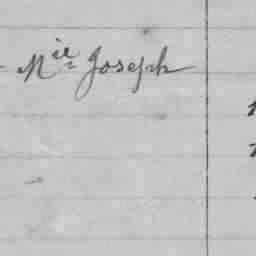 - M^ie Joseph